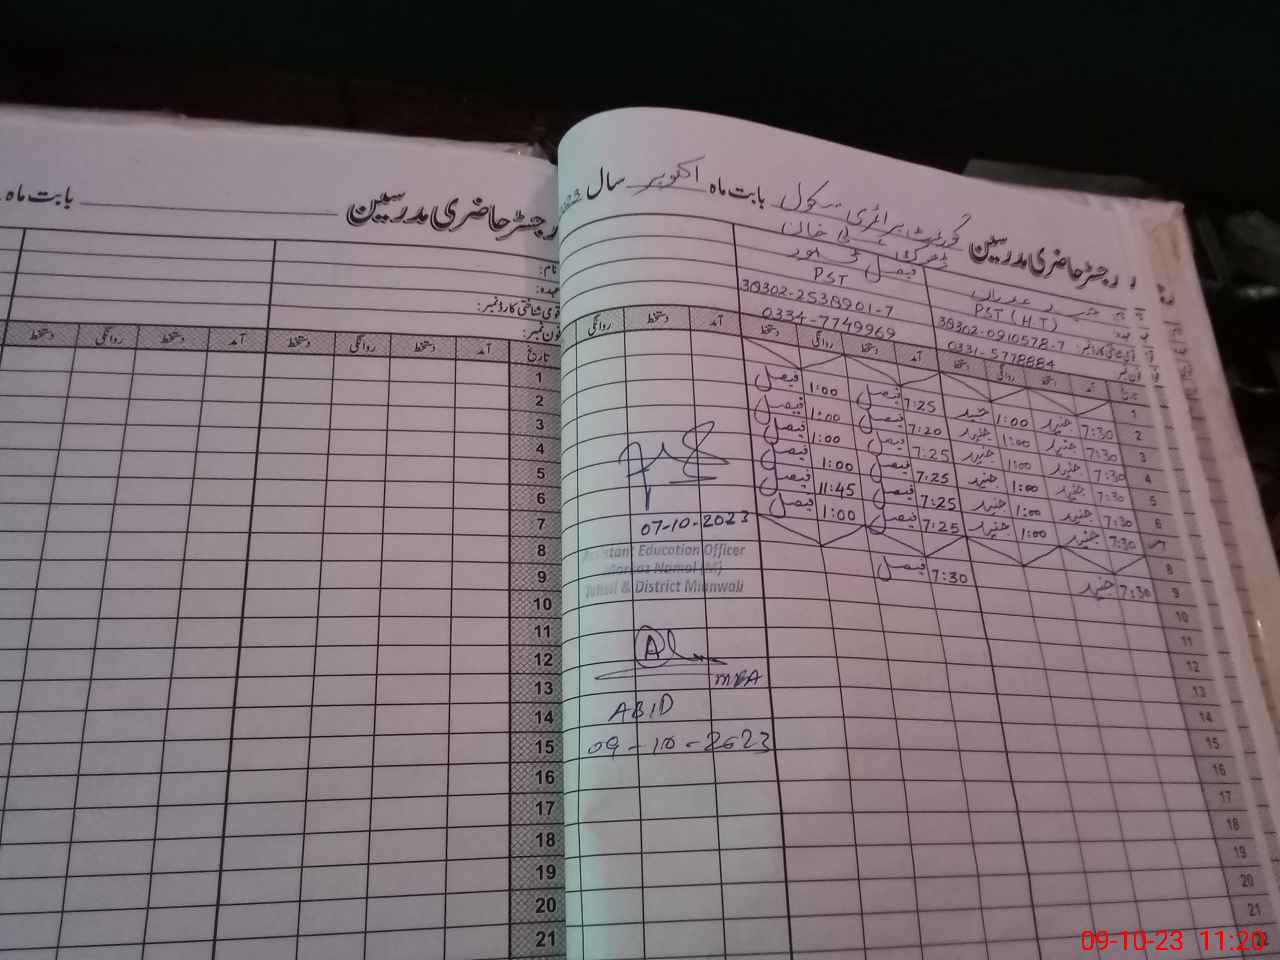 رجسٹر حاضری مدرسین گورنمنٹ پرائمری سکول بابت ماہ اکتوبر سال
PST (HT)
PST
38302-0910578-7
38302-2538901-7
0331-5778884
0334-7749969
تاریخ آمد دستخط روانگی دستخط آمد دستخط روانگی دستخط آمد دستخط روانگی
1
2 7:30 جنید 1:00 جنید 7:25 فیصل 1:00 فیصل
3 7:30 جنید 1:00 جنید 7:20 فیصل 1:00 فیصل
4 7:30 جنید 1:00 جنید 7:25 فیصل 1:00 فیصل
5 7:30 جنید 1:00 جنید 7:25 فیصل 1:00 فیصل
6 7:30 جنید 1:00 جنید 7:25 فیصل 11:45 فیصل
7 7:30 جنید 1:00 جنید 7:25 فیصل 1:00 فیصل
8
9 7:30 جنید 7:30 فیصل
10
11
12
13
14
15
16
17
18
19
20
21
07-10-2023
Assistant Education Officer
Markaz Namal (M)
Tehsil & District Mianwali
MEA
ABID
09-10-2023
رجسٹر حاضری مدرسین بابت ماہ
نام:
عہدہ:
قومی شناختی کارڈ نمبر:
فون نمبر:
تاریخ آمد دستخط روانگی دستخط آمد دستخط روانگی دستخط
1
2
3
4
5
6
7
8
9
10
11
12
13
14
15
16
17
18
19
20
21
09-10-23 11:20